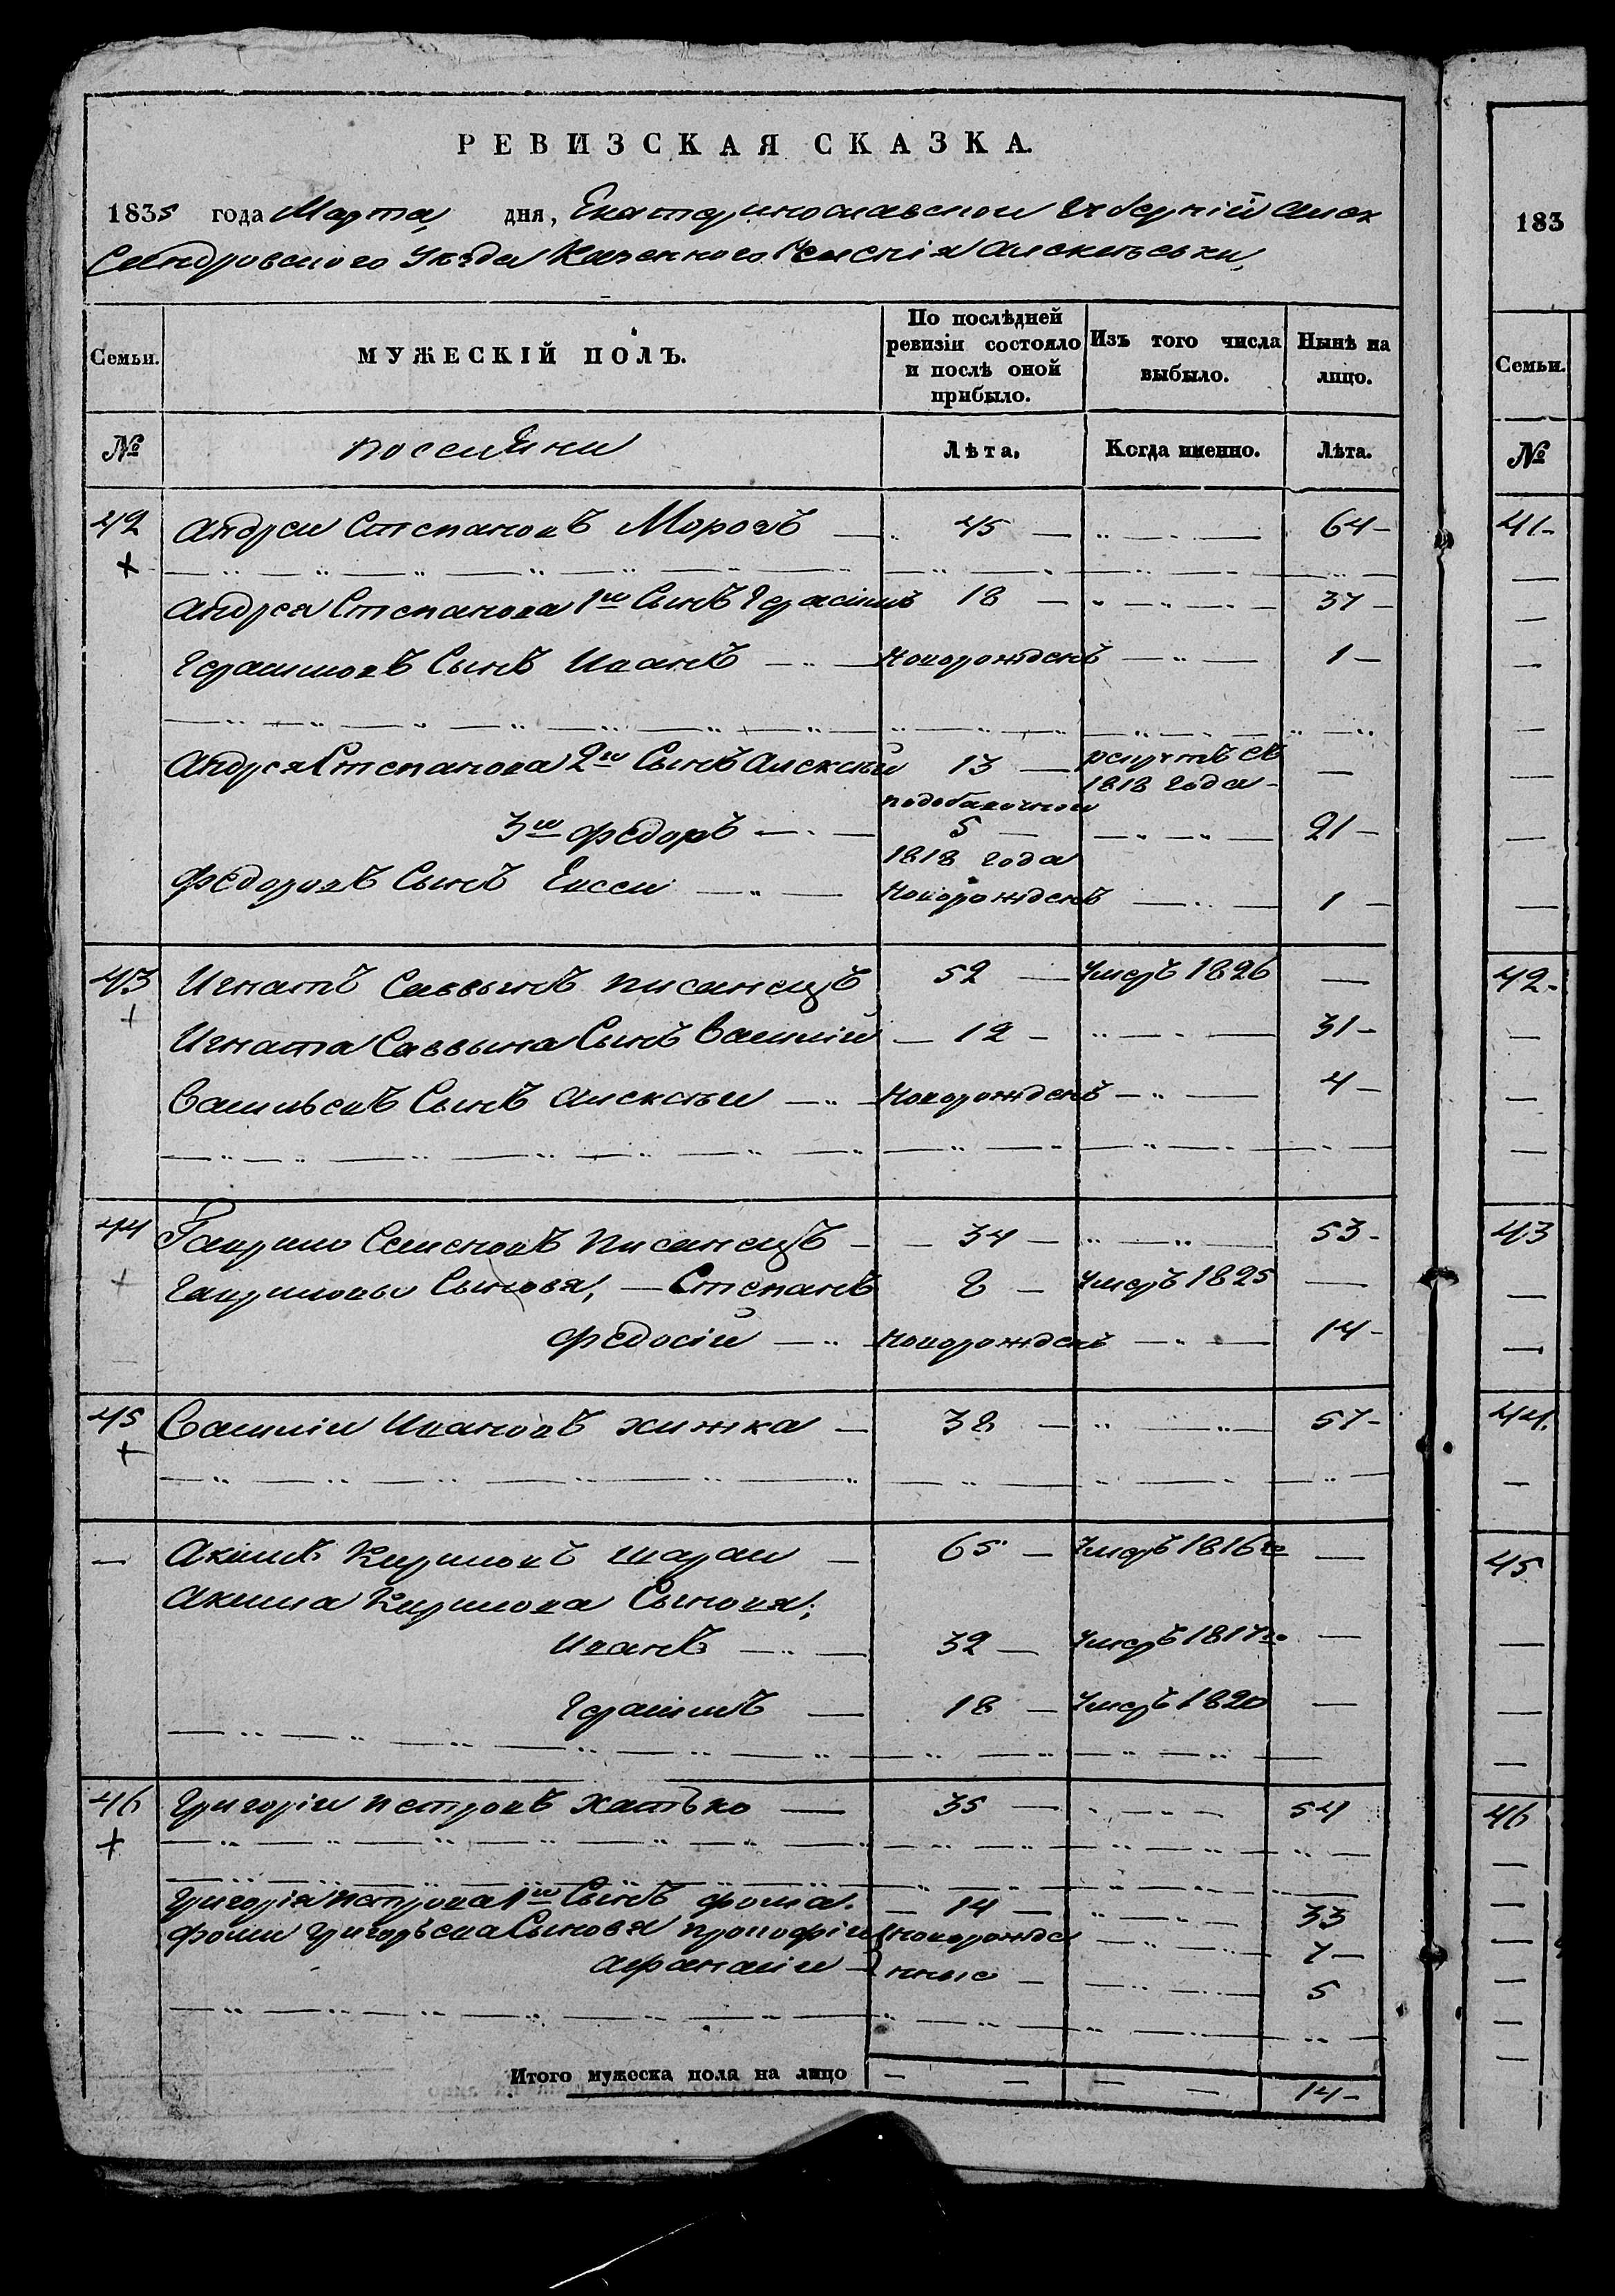 РЕВИЗСКАЯ СКАЗКА.
1835 года Марта дня, Екатеринославской Губерніи Алек
сандровского Уезда Казенного Селенія
Семьи. МУЖЕСКІЙ ПОЛЪ. По послѣдней ревизіи состояло и послѣ оной прибыло. Изъ того числа выбыло. Нынѣ на лицо.
№ Лѣта. Когда именно. Лѣта.
42 Андреи Степановъ Морозъ 45 64
Андрея Степанова 1й Сынъ Герасимъ 18 37
Герасимовъ Сынъ Иванъ Новорожденъ 1
Андрея Степанова 2й Сынъ Алексѣй 13 рекрутъ съ
1818 года
подобавочной
3й Федоръ 5 21
1818 года
Федоровъ Сынъ Новорожденъ 1
43 Игнатъ Саввинъ Писанецъ 52 Умеръ 1826
Игната Саввина Сынъ Василій 12 31
Васильевъ Сынъ Алексѣи Новорожденъ 4
44 Гаврило Семеновъ Писанецъ 34 53
Гавриловы Сыновья, Степанъ 8 Умеръ 1825
Федосій Новорожденъ 14
45 Василіи Ивановъ Хижка 38 57
Акимъ Кириловъ 65 Умеръ 1816го
Акима Кирилова Сыновя;
Иванъ 32 Умеръ 1817го
Герасимъ 18 Умеръ 1820
46 Григоріи Петровъ Хатько 35 54
Григорія Петрова 1й Сынъ Фома. 14 33
Фомы Григорьева Сыновя Прокофіи Новорожде 7
Афанасіи нные 5
Итого мужеска пола на лицо 14
183
Семьи.
№
41
42
43
44
45
46